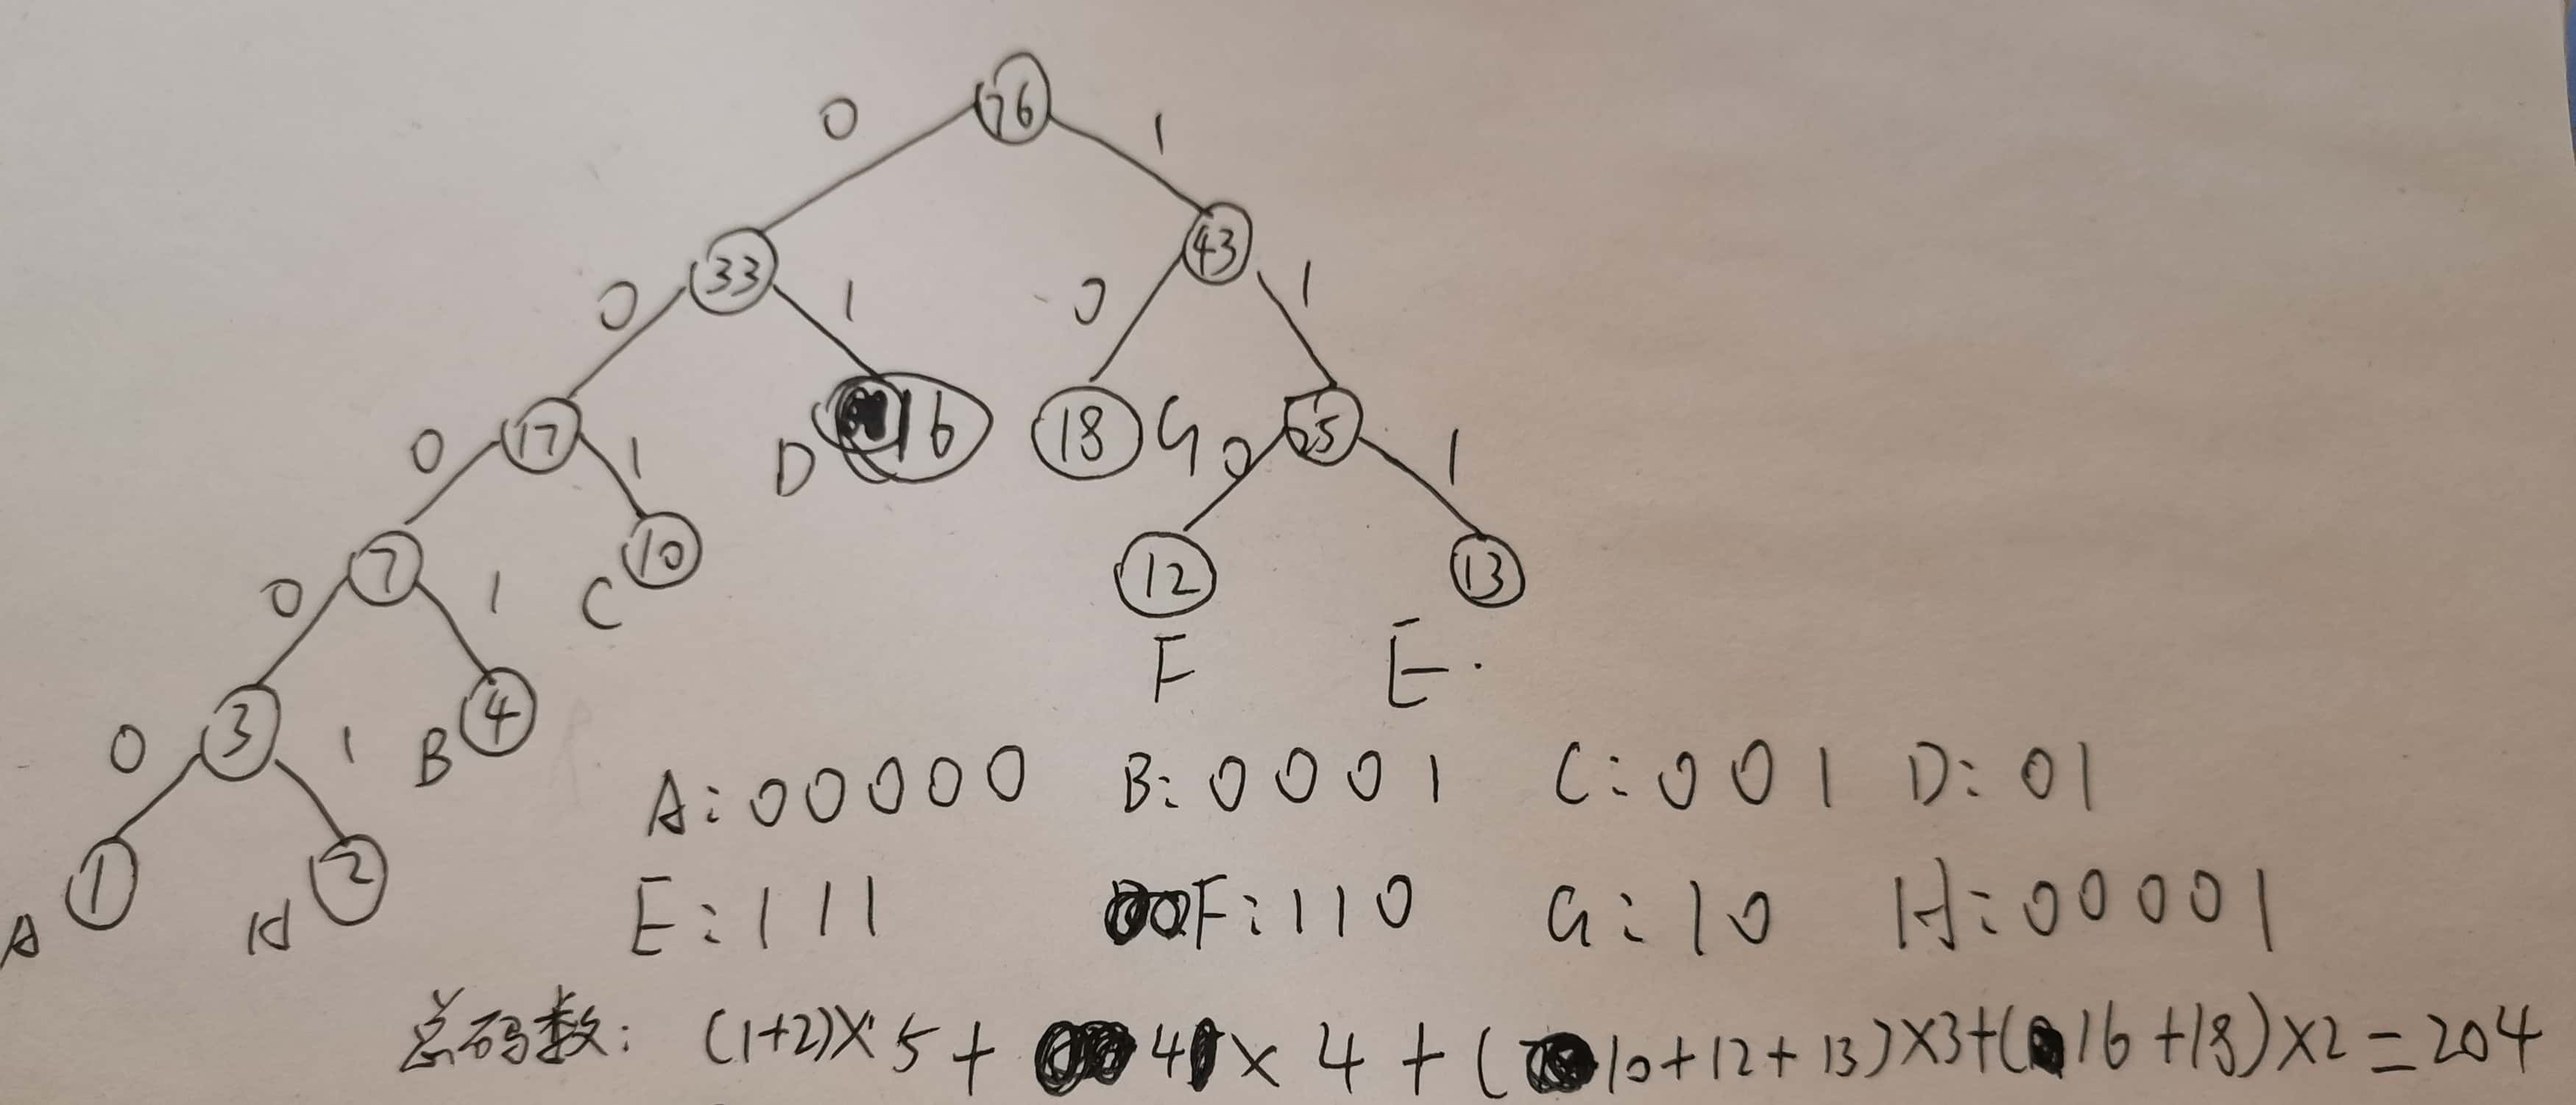 76
0 1
33 43
0 1 0 1
17 D 16 18 G 25
0 1 0 1
7 C 10 12 13
0 1 F E.
3 B 4
0 1
A 1 H 2
A:00000 B:0001 C:001 D:01
E:111 F:110 G:10 H:00001
总码数: (1+2)×5+4×4+(10+12+13)×3+(16+18)×2=204